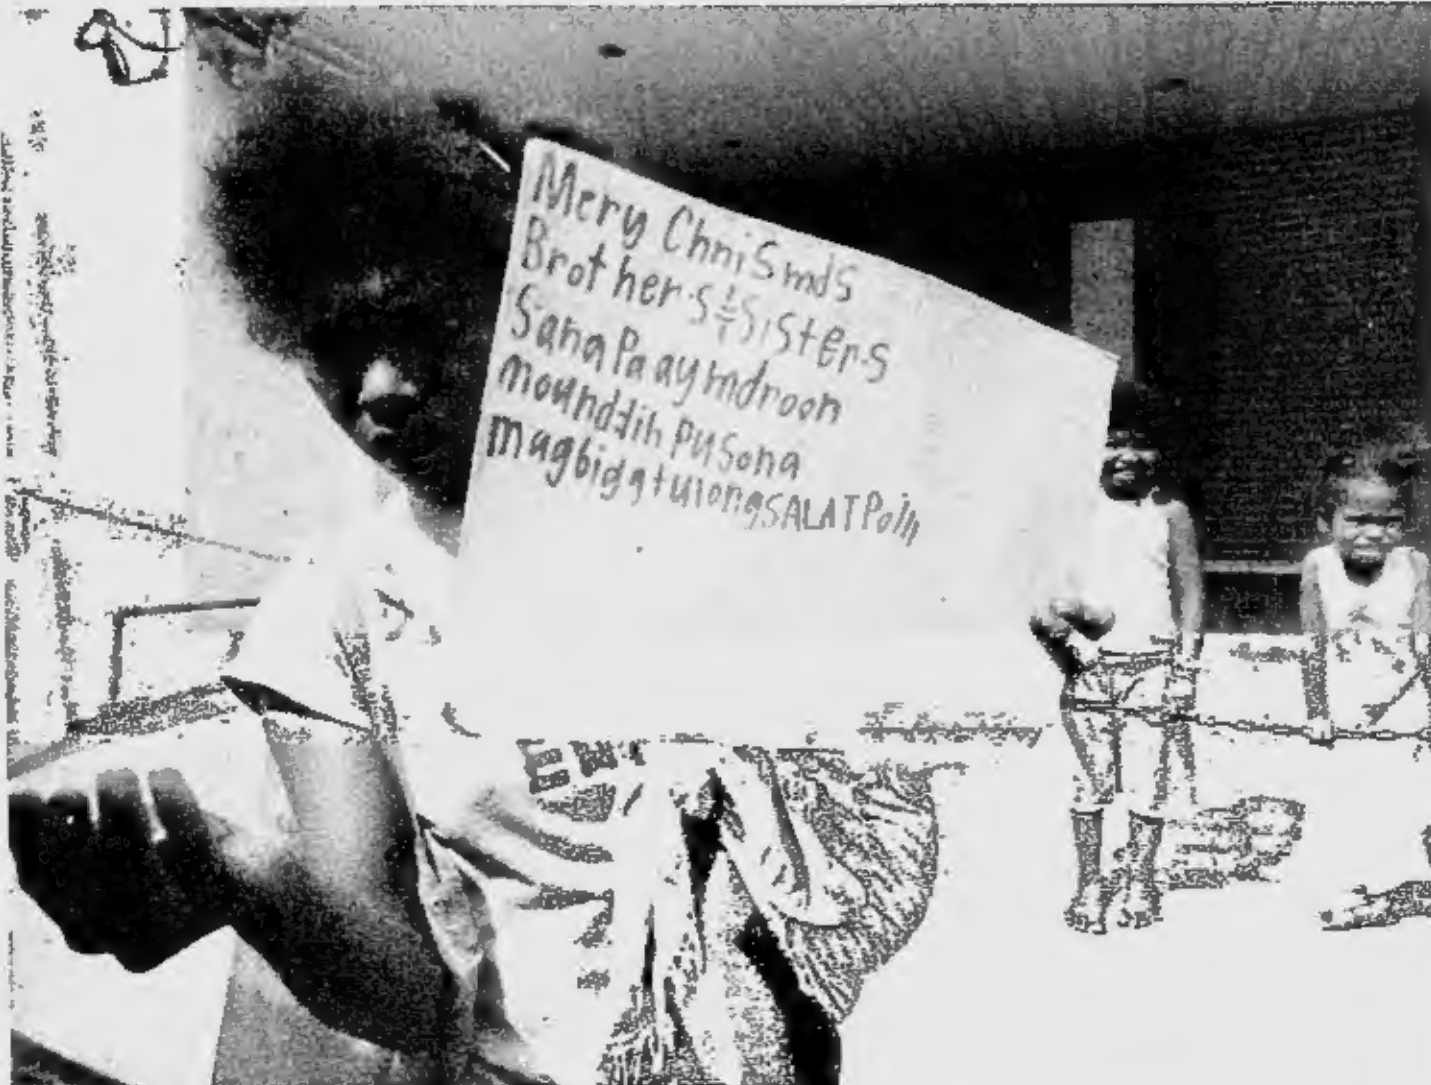 Mery Chrismas
Brothers & Sisters
Sana Pa ay maroon
mounddih pusona
magbiga tulong SALAT Poin
EN